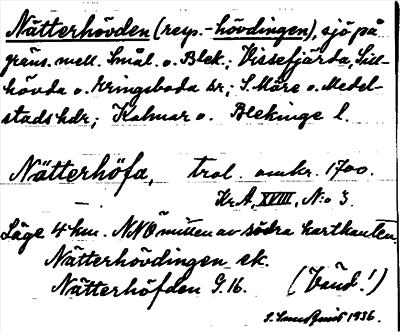 Nätterhövden (resp. -hövdingen), sjö på
gräns. mell. Smål. o. Blek.; Vissefjärda, Sill-
hövda o. Kringsboda sr; S. Möre o. Medel-
stads hdr; Kalmar o. Blekinge l.
Nätterhöfa, trol. omkr. 1700.
Kr.A. XVIII, N:o 3.
Läge 4 km. NNÖ mitten av södra kartkanten.
Nätterhövdingen ek.
Nätterhöfden G. 16. (Vänd!)
1936.